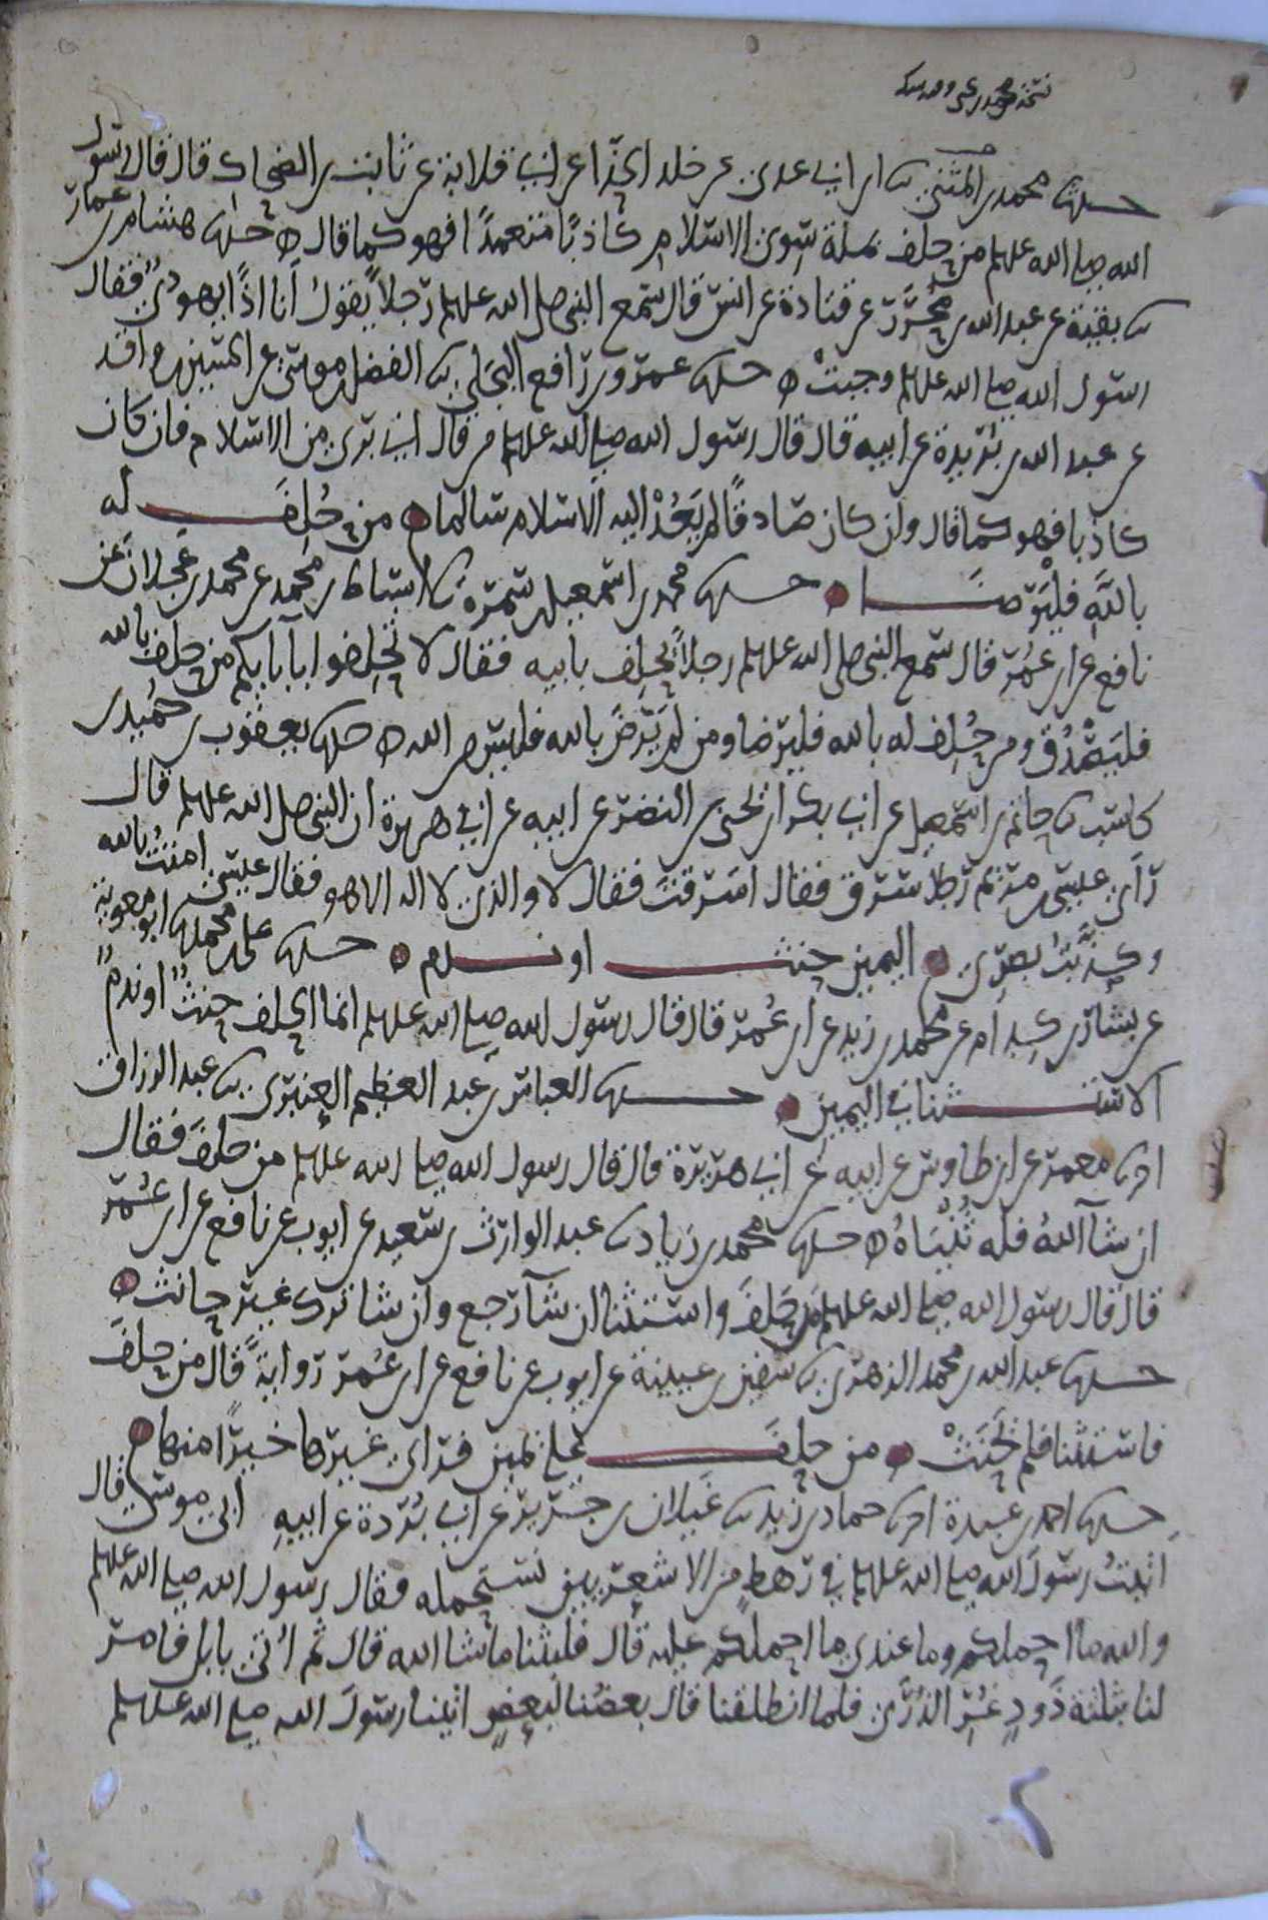 حدثنا محمد بن المثنى ثنا ابن ابي عدي عن خلد الحذا عن ابي قلابة عن ثابت بن الضحاك قال قال رسول
الله صلى الله عليه وسلم من حلف بملة سوى الاسلام كاذبًا متعمدًا فهو كما قال ه حدثنا هشام بن عمار
ثنا بقية عن عبد الله بن محرَّر عن قتادة عن انس قال سمع النبي صلى الله عليه وسلم رجلاً يقول أنا اذًا ليهوديٌّ فقال
رسول الله صلى الله عليه وسلم وجبتْ ه حدثنا عمرو بن رافع البجلي ثنا الفضل بن موسى عن الحسين بن واقد
عن عبد الله بن بُريدة عن ابيه قال قال رسول الله صلى الله عليه وسلم من قال اني بري من الاسلام فان كان
كاذبا فهو كما قال وان كان صادقًا لم يَعُدْ اليه الاسلام سالما ه من حُلِفَ له
باللَّهِ فليَرْضَا ه حدثنا محمد بن اسمعيل بن سمرة ثنا اسباط بن محمد عن محمد بن عجلان عن
نافع عن ابن عُمَر قال سمع النبي صلى الله عليه وسلم رجلاً يحلِف بابيه فقال لا تحلِفوا بآبايكم من حلف بالله
فليَصْدُق ومن حُلِف له بالله فليرضا ومن لم يَرْضَ بالله فليس من الله ه حدثنا يعقوب بن حُميد بن
كاسب ثنا حاتم بن اسمعيل عن ابي بكر بن يحيى بن النضر عن ابيه عن ابي هريرة ان النبي صلى الله عليه وسلم قال
رَأى عيسى بن مريم رجلاً يسرق فقال اسَرقتَ فقال لا والذي لا اله الا هو فقال عيسى امنتُ بالله
وكذَّبتُ بصَرِي ه اليمين حنث او ندم ه حدثنا علي بن محمد ثنا ابو معوية
عن بشار بن كِدام عن محمد بن زيد عن ابن عُمَر قال قال رسول الله صلى الله عليه وسلم انما الحلِف حِنثٌ او ندمٌ
الاستثنا في اليمين ه حدثنا العباس بن عبد العظيم العنبري ثنا عبد الرزاق
انا معمر عن ابن طاوس عن ابيه عن ابي هريرة قال قال رسول الله صلى الله عليه وسلم من حلفَ فقال
ان شآ اللهُ فله ثُنْيَاهُ ه حدثنا محمد بن زياد ثنا عبد الوارث بن سعيد عن ايوب عن نافع عن ابن عُمَر
قال قال رسول الله صلى الله عليه وسلم من حَلَفَ واستثنا ان شآ رجع وان شا ترك غير حانث ه
حدثنا عبد الله بن محمد الزهري ثنا سفين بن عيينة عن ايوب عن نافع عن ابن عُمَر روايةً قال من حلفَ
فاستثنا فلم يَحنَثْ ه من حلفَ على يمين فرأى غيرَها خيرًا منها ه
حدثنا احمد بن عبدة انا حماد بن زيد ثنا غيلان بن جَرير عن ابي بُردة عن ابيهِ ابي موسى قال
اتيتُ رسولَ الله صلى الله عليه وسلم في رهطٍ من الاشعريين نستحمله فقال رسول الله صلى الله عليه وسلم
والله ما احملكم وما عندي ما احملكم عليه قال فلبثنا ما شا الله قال ثم اُتي بابل فامر
لنا بثلثة ذَودٍ غُرِّ الذُّرَى فلما انطلقنا قال بعضُنا لبعضٍ اتينا رسولَ الله صلى الله عليه وسلم